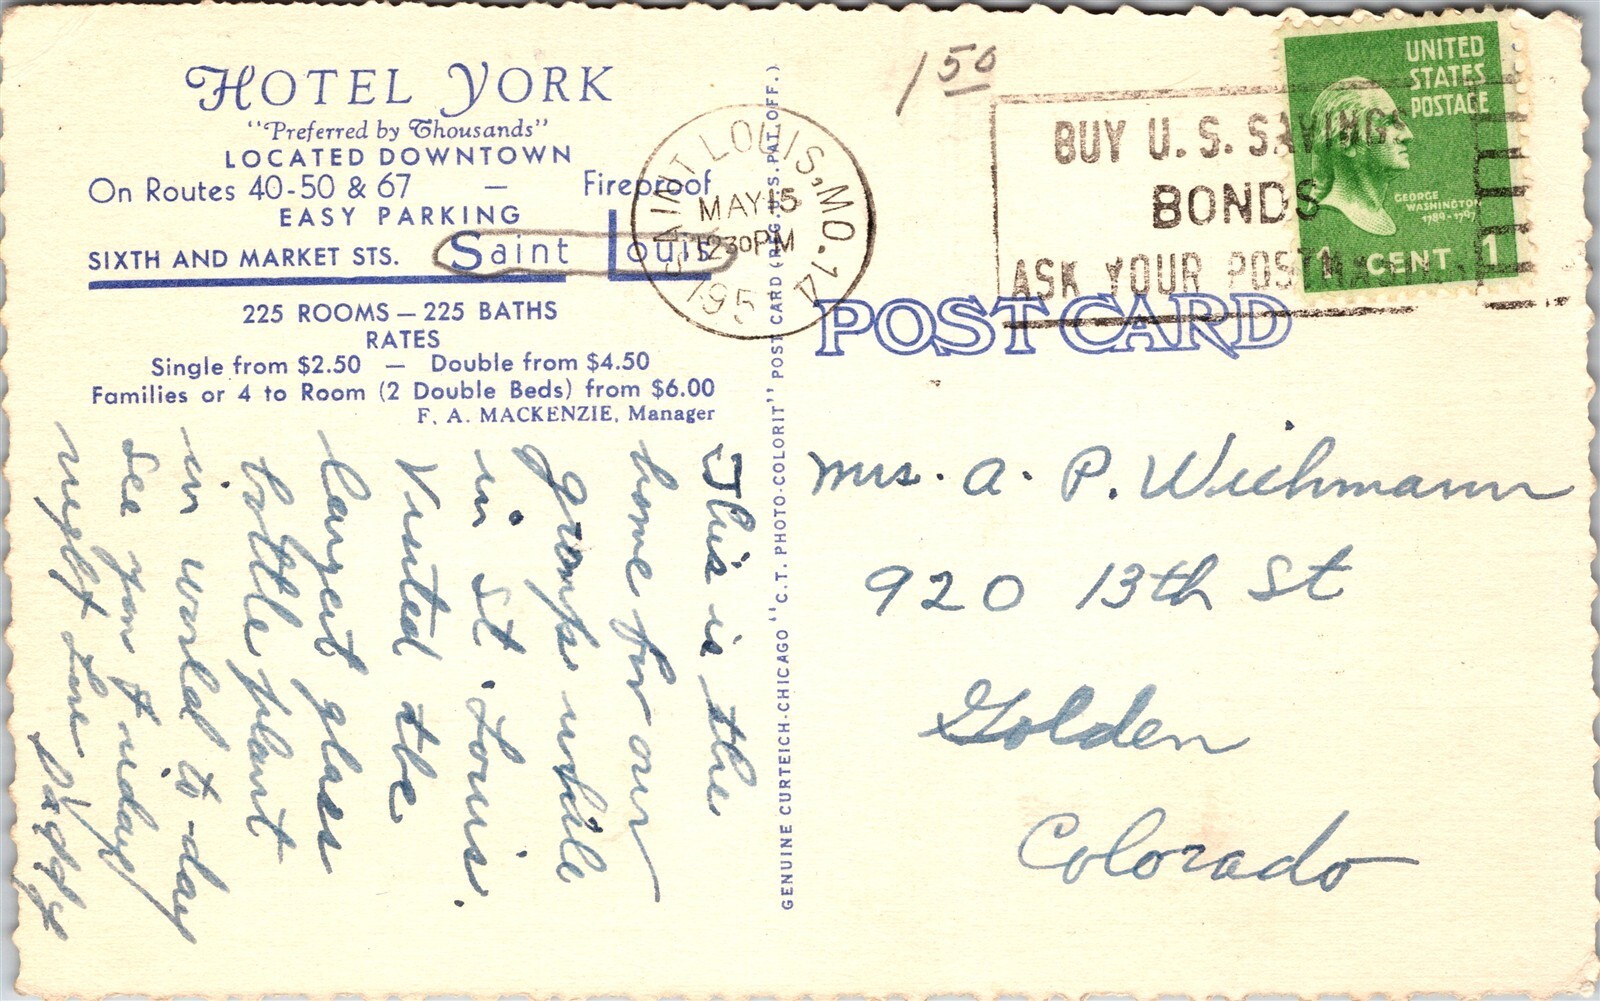 HOTEL YORK
"Preferred by Thousands"
LOCATED DOWNTOWN
On Routes 40-50 & 67 — Fireproof
EASY PARKING
SIXTH AND MARKET STS. Saint Louis
225 ROOMS — 225 BATHS
RATES
Single from $2.50 — Double from $4.50
Families or 4 to Room (2 Double Beds) from $6.00
F. A. MACKENZIE, Manager
This is the
home for our
group while
in St. Louis.
Visited the
largest glass
bottle plant
in world to-day
See you Friday
night Love Daddy
GENUINE CURTEICH-CHICAGO "C.T. PHOTO-COLORIT" POST CARD (REG. U.S. PAT. OFF.)
SAINT LOUIS, MO. 14
MAY 15
1230 PM
195
1 50
BUY U.S. SAVINGS
BONDS
ASK YOUR POSTMASTER
UNITED
STATES
POSTAGE
GEORGE
WASHINGTON
1789-1797
1 CENT 1
POST CARD
Mrs. A. P. Wichmann
920 13th St
Golden
Colorado